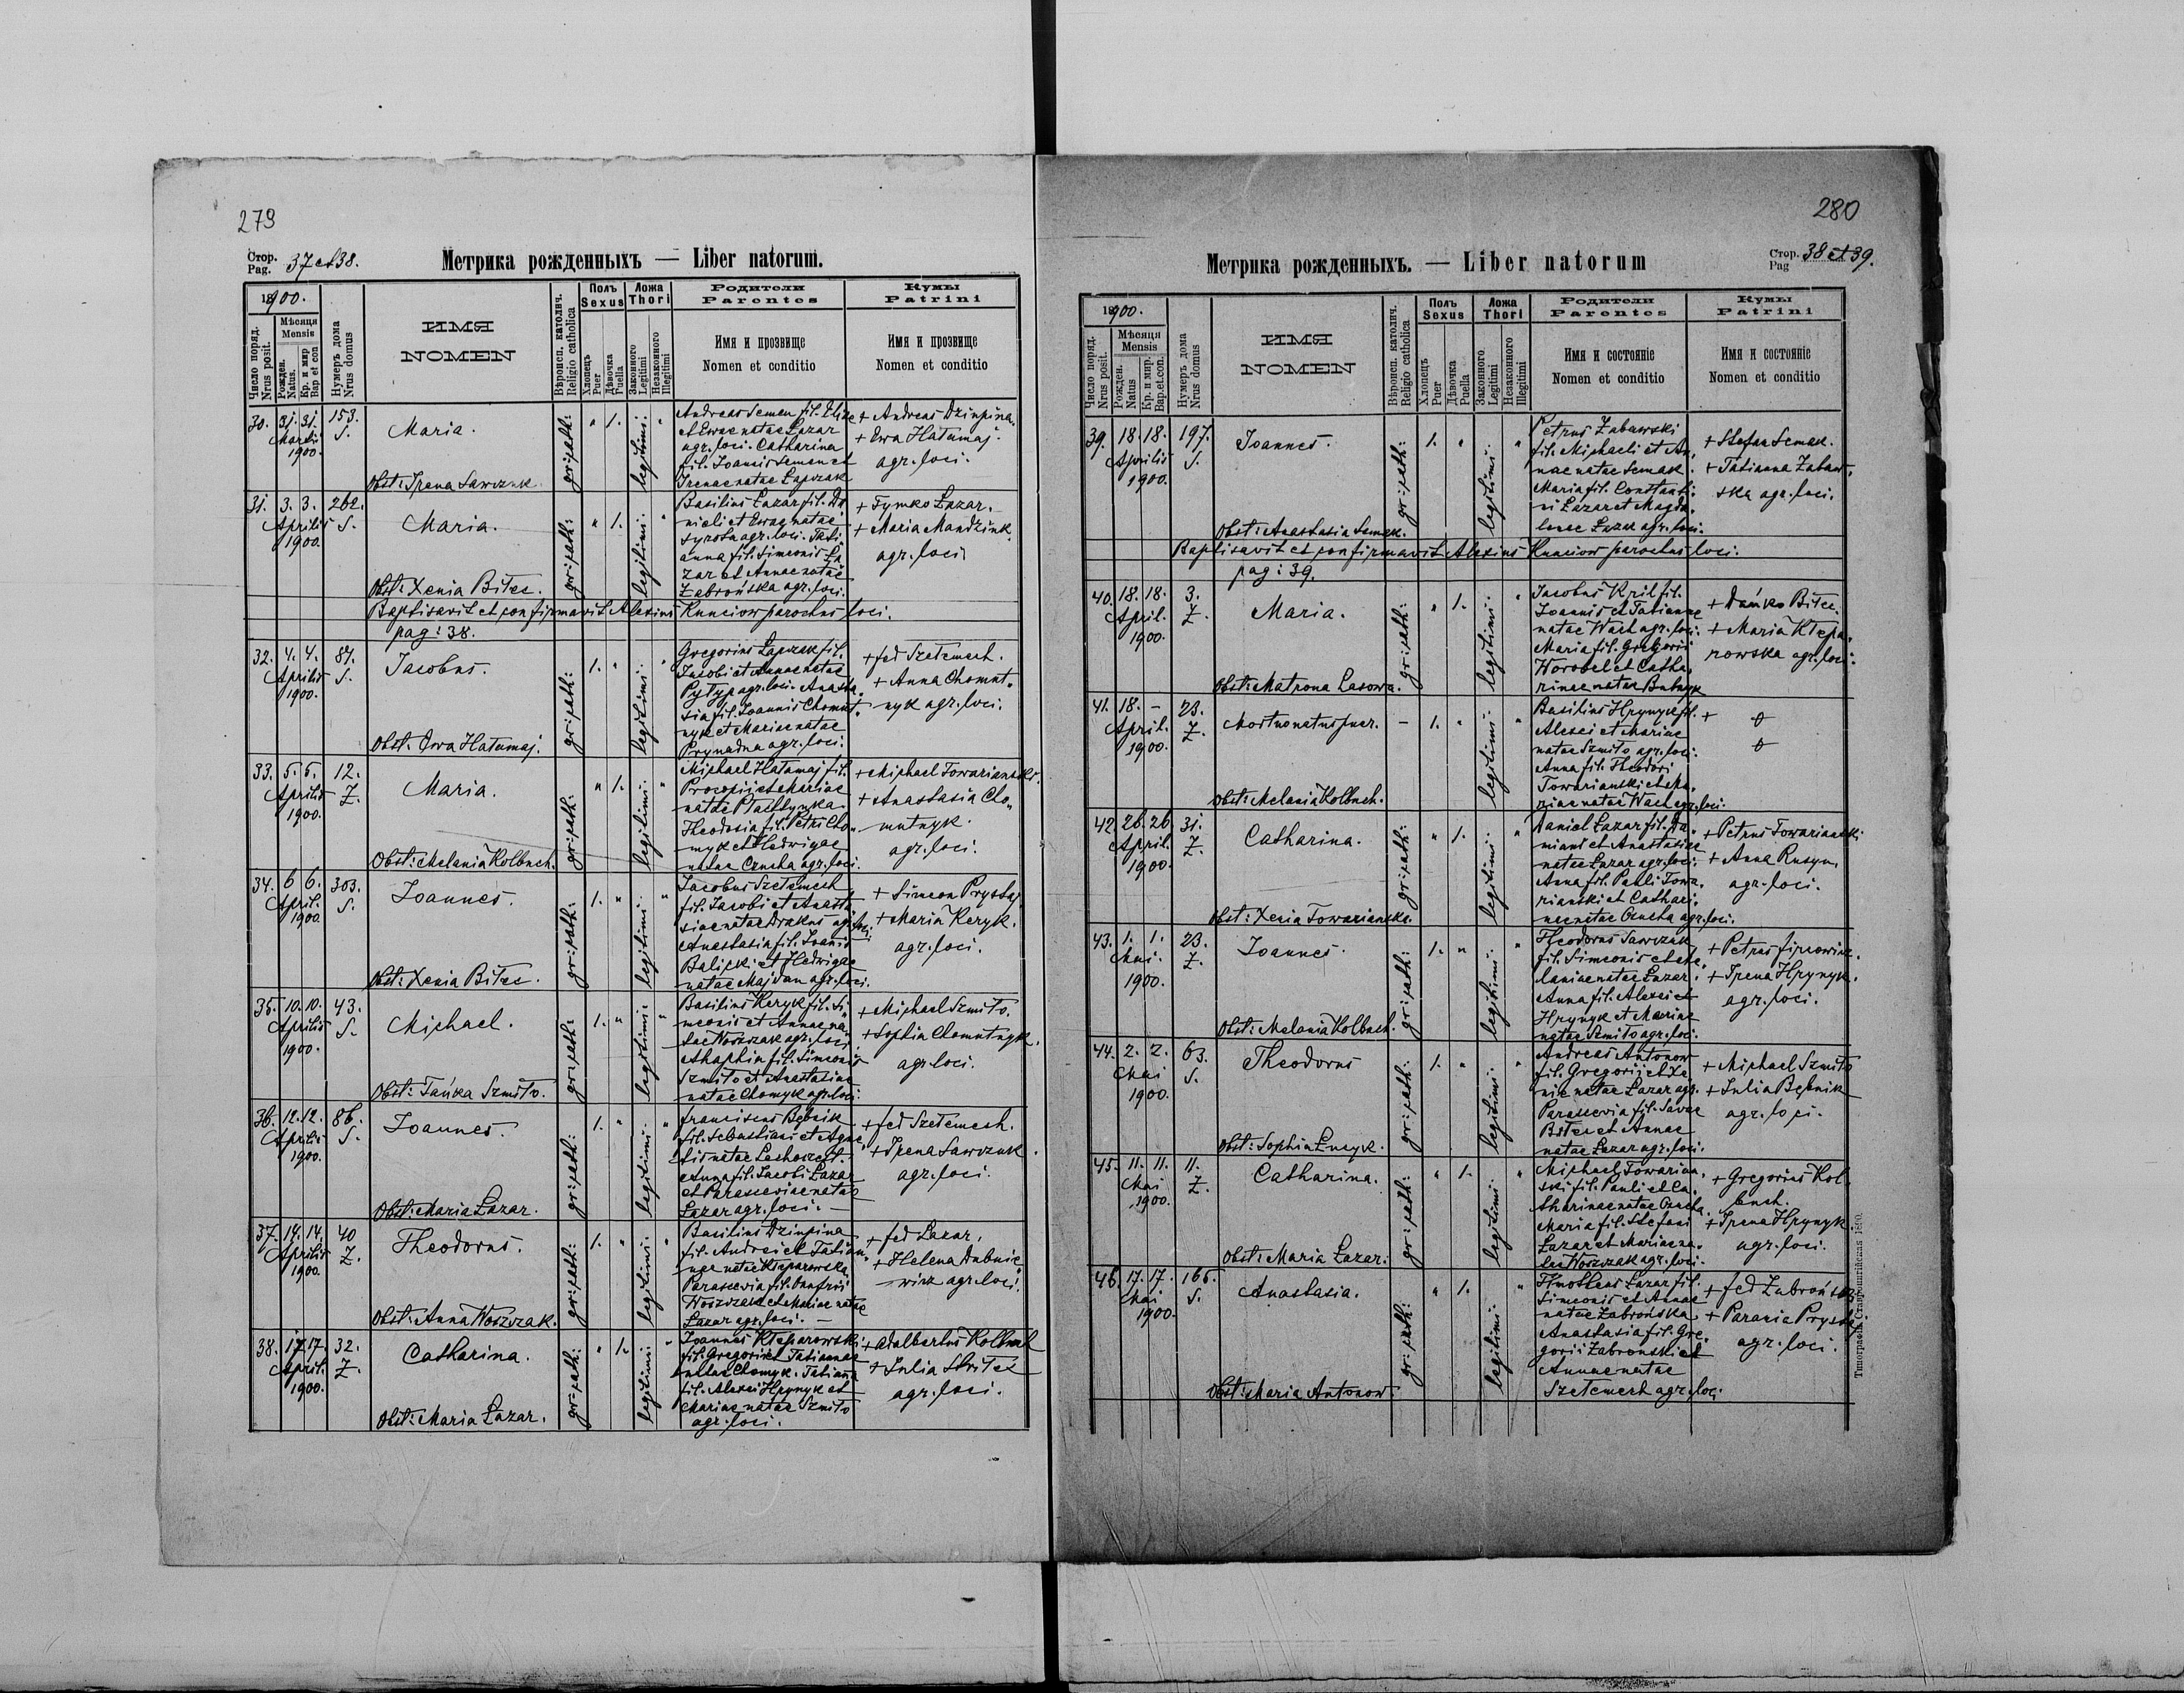 279
Стор. Pag. 37 et 38.
Метрика рожденныхъ — Liber natorum.
1900.
Число поряд. Nrus posit.
Мѣсяця Mensis
Рожден. Natus.
Кр. и мир Bap et con
Нумеръ дома Nrus domus
ИМЯ
NOMEN
Вѣроисп. католич. Religio catholica
Полъ Sexus
Хлопецъ Puer
Дѣвочка Puella
Ложа Thori
Законного Legitimi
Незаконного Illegitimi
Родители
Parentes
Имя и прозвище
Nomen et conditio
Кумы
Patrini
Имя и прозвище
Nomen et conditio
30. 31. 31. Martii 1900. 153. S.
Maria.
Obst: Irena Sawczuk.
gr: cath: " 1. legitimi: "
Andreas Semen fil. Eliae
et Ewae natae Lazar
agr. loci. Catharina
fil. Joannis Semen et
Irenae natae Łapczak
+ Andreas Dzinpina.
+ Ewa Hałamaj.
agr. loci.
31. 3. 3. Aprilis 1900. 262. S.
Maria.
Obst: Xenia Biłec.
gr: cath: " 1. legitimi: "
Basilius Łazar fil. Da
nieli et Ewae natae
Syrota agr. loci. Tati
anna fil. Simeonis Ła
zar et Annae natae
Zabrońska agr. loci.
+ Tymko Łazar.
+ Maria Mandziuk.
agr. loci
Baptisavit et confirmavit Alexius Kunciow parochus loci.
pag: 38.
32. 4. 4. Aprilis 1900. 87. S.
Jacobus.
Obst: Ewa Hałamaj.
gr: cath: 1. " legitimi: "
Gregorius Łapczak fil.
Jacobi et Annae natae
Pytyp agr. loci. Anasta
sia fil. Joannis Chomut
nyk et Mariae natae
Prynadna agr. loci.
+ fed Szełemech.
+ Anna Chomut
nyk agr. loci.
33. 5. 5. Aprilis 1900. 12. Z.
Maria.
Obst: Melania Kolbuch.
gr: cath: " 1. legitimi: "
Michael Hałamaj fil.
Procopii et Mariae
natae
Theodosia fil. Petri Cho
myk et Hedwigae
natae Czucha agr. loci.
+ Michael Towarianski.
+ Anastasia Cho
mutnyk.
agr. loci.
34. 6 6. April. 1900. 303. S.
Joannes.
Obst: Xenia Biłec.
gr: cath: 1. " legitimi: "
Jacobus Szełemech
fil. Jacobi et Anasta
siae natae Drakus agr. loci
Anastasia fil. Joannis
Balicki et Hedwigae
natae Majdan agr. loci.
+ Simeon Prystaj
+ Maria Keryk.
agr. loci.
35. 10. 10. Aprilis 1900. 43. S.
Michael.
Obst: Tańka Szmiło.
gr: cath: 1. " legitimi: "
Basilius Keryk fil. Si
meonis et Annae na
tae Woszczak agr. loci.
Ahaphia fil. Simeonis
Szmiło et Anastasiae
natae Chomyk agr. loci.
+ Michael Szmiło.
+ Sophia Chomutnyk.
agr. loci.
36. 12. 12. Aprilis 1900. 86. S.
Joannes.
Obst: Maria Łazar.
gr: cath: 1. " legitimi: "
Franciscus Bębnik
fil. Sebastiani et Agne
tis natae
Anna fil. Jacobi Łazar
et Parasceviae natae
Łazar agr. loci. —
+ fed Szełemech.
+ Irena Sawczuk
agr. loci.
37. 14. 14. Aprilis 1900. 40 Z.
Theodorus.
Obst: Anna Woszczak.
gr: cath: 1. " legitimi: "
Basilius Dzinpina
fil. Andrei et Tatian
nae natae Kleparowska
Parascevia fil. Onufrii
Woszczak et Mariae natae
Łazar agr. loci. —
+ fed Łazar.
+ Helena Dubnie
wicz agr. loci.
38. 17. 17. April. 1900. 32. Z.
Catharina.
Obst: Maria Łazar.
gr: cath: " 1. legitimi: "
Joannes Kleparowski
fil. Gregorii et Tatiannae
natae Chomyk. Tatiana
fil. Alexei Hrynyk et
Mariae natae Szmiło
agr. loci.
+ Adalbertus Kolbuch
+ Julia
agr. loci.
280
Стор. Pag 38 et 39.
Метрика рожденныхъ. — Liber natorum
1900.
Число поряд. Nrus posit.
Мѣсяця Mensis
Рожден. Natus
Кр. и мир. Bap.et.con.
Нумеръ дома Nrus domus
ИМЯ
NOMEN
Вѣроисп. католич. Religio catholica
Полъ Sexus
Хлопецъ Puer
Дѣвочка Puella
Ложа Thori
Законного Legitimi
Незаконного Illegitimi
Родители
Parentes
Имя и состояніе
Nomen et conditio
Кумы
Patrini
Имя и состояніе
Nomen et conditio
39. 18. 18. Aprilis 1900. 197. S.
Joannes.
Obst: Anastasia Semak.
gr: cath: 1. " legitimi: "
Petrus Zabawski
fil. Michaeli et An
nae natae Semak.
Maria fil. Constanti
ni Łazar et Magda
lenae Łazar agr. loci.
+ Stefan Semak.
+ Tatianna Zabaw
ska agr. loci.
Baptisavit et confirmavit Alexius Kunciow parochus loci.
pag: 39.
40. 18. 18. April. 1900. 3. Z.
Maria.
Obst: Matrona Lasowa.
gr: cath: " 1. legitimi: "
Jacobus Kril fil.
Joannis et Tatianne
natae Wach agr. loci.
Maria fil. Gregorii
Worobel et Catha
rinae natae Butnyk
+ Dańko Biłec.
+ Maria Klepa
rowska agr. loci.
41. 18. — April. 1900. 23. Z.
Mortuonatus puer.
Obst: Melania Kolbuch.
— 1. " legitimi: "
Basilius Hrynyk fil.
Alexei et Mariae
natae Szmiło agr. loci.
Anna fil. Theodori
Towarianski et Ma
riae natae Wach agr. loci.
+
42. 26. 26. April. 1900. 31. Z.
Catharina.
Obst: Xenia Towarianska.
gr: cath: " 1. legitimi: "
Daniel Łazar fil. Da
miani et Anastasiae
natae Łazar agr. loci.
Anna fil. Pauli Towa
rianski et Cathari
nae natae Czucha agr. loci.
+ Petrus Towarianski
+ Anna Rusyn.
agr. loci.
43. 1. 1. Mai. 1900. 23. Z.
Joannes.
Obst: Melania Kolbuch.
gr: cath: 1. " legitimi: "
Theodorus Sawczuk
fil. Simeonis et Me
laniae natae Łazar.
Anna fil. Alexei et
Hrynyk et Mariae
natae Szmiło agr. loci.
+ Petrus
+ Irena Hrynyk.
agr. loci.
44. 2. 2. Mai 1900. 63. S.
Theodorus
Obst: Sophia Łucyk.
gr: cath: 1. " legitimi: "
Andreas Antonow
fil. Gregorij et Xe
nie natae Łazar agr.
Parascevia fil. Savae
Biłec et Annae
natae Łazar agr. loci.
+ Michael Szmiło
+ Julia Bębnik
agr. loci.
45. 11. 11. Mai 1900. 11. Z.
Catharina.
Obst: Maria Łazar.
gr: cath: " 1. legitimi: "
Michael Towarian
ski fil. Pauli et Ca
tharinae natae Czucha.
Maria fil. Stefani
Łazar et Mariae na
tae Woszczak agr. loci.
+ Gregorius Kol
buch.
+ Irena Hrynyk
agr. loci.
46. 17. 17. Mai 1900. 166. S.
Anastasia.
Obst: Maria Antonow
gr: cath: " 1. legitimi: "
Timotheus Łazar fil.
Simeonis et Annae
natae Zabrońska.
Anastasia fil. Gre
gorii Zabronski et
Annae natae
Szełemech agr. loci.
+ fed Zabroński
+ Parania Prystaj
agr. loci.
Типографія Ставропигійская 1890.